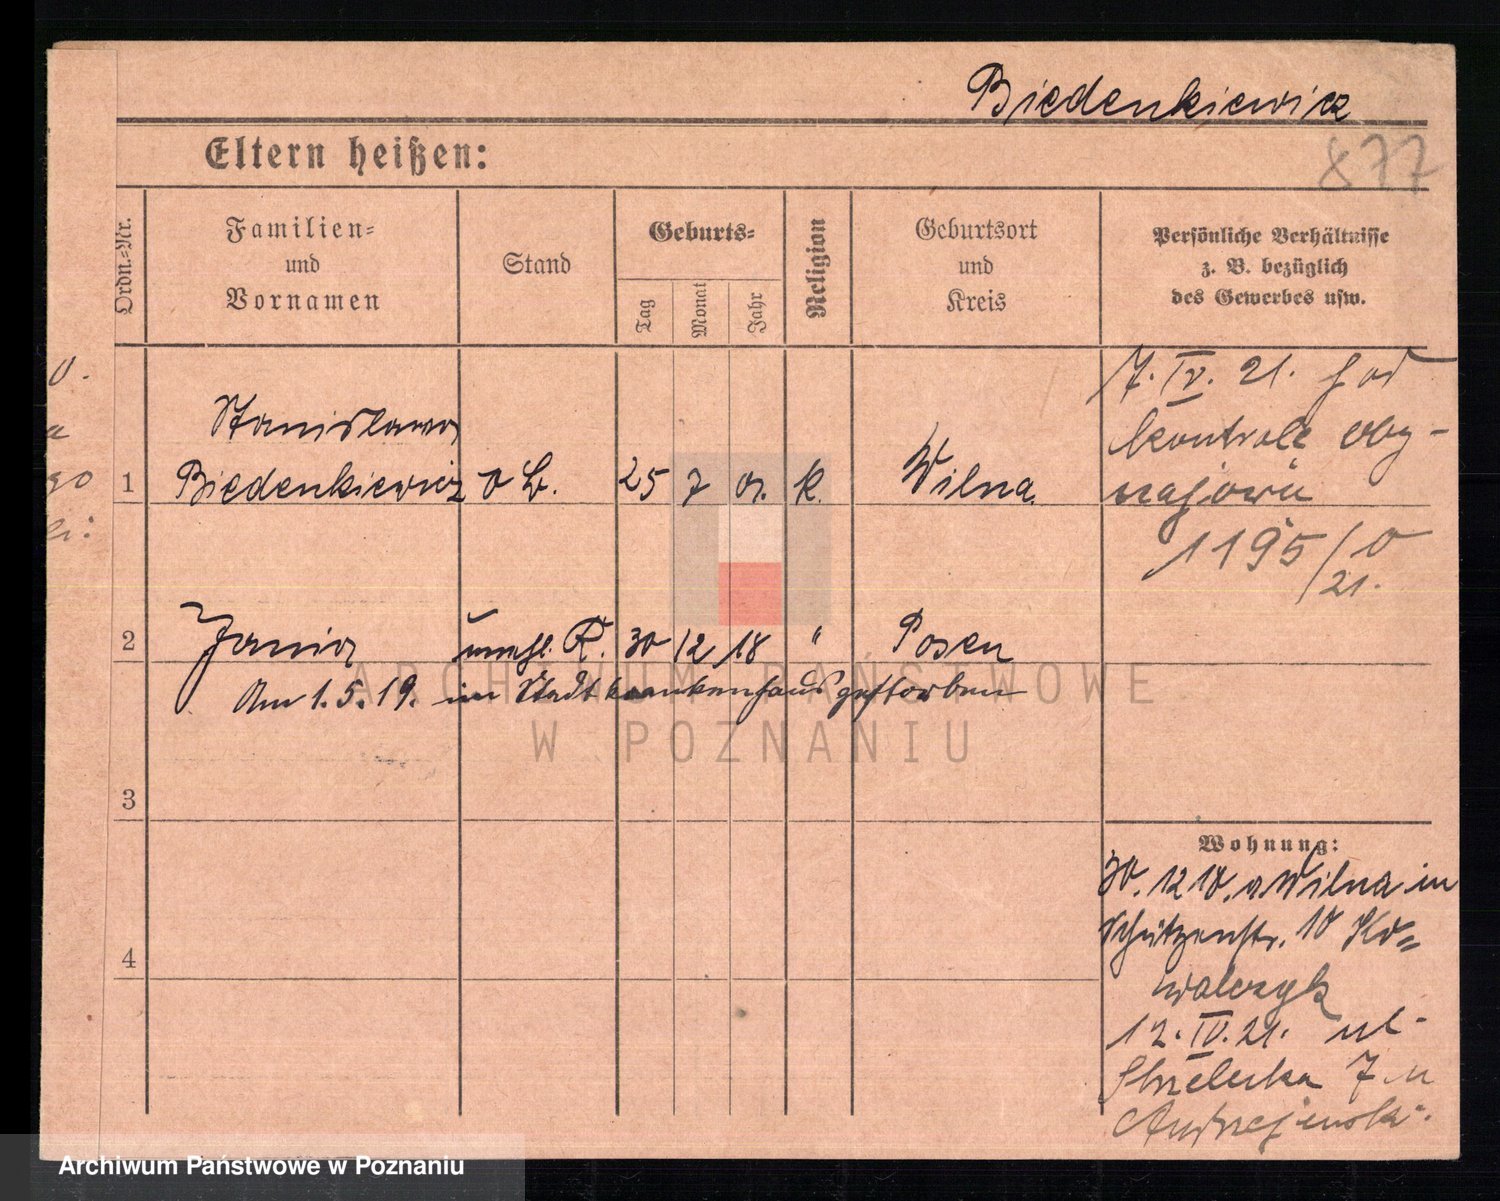 Biedenkiewicz
877
Eltern heißen:
Ordn.-Nr.
Familien-
und
Vornamen
Stand
Geburts-
Tag
Monat
Jahr
Religion
Geburtsort
und
Kreis
Persönliche Verhältnisse
z. B. bezüglich
des Gewerbes usw.
7. IV. 21. pod
kontrolę oby-
czajową
1195/O
21.
Stanislawa
1 Biedenkiewicz o B. 25 7 01. k. Wilna
2 Janina unehl. K. 30 12 18 " Posen
Am 1.5.19. im Stadtkrankenhaus gestorben
3
4
Wohnung:
30. 12 18. v Wilna in
Schützenstr. 10 Ko=
walczyk
12. IV. 21. ul.
Strzelecka 7 u
Andrzejewski.
ARCHIWUM PAŃSTWOWE
W POZNANIU
Archiwum Państwowe w Poznaniu